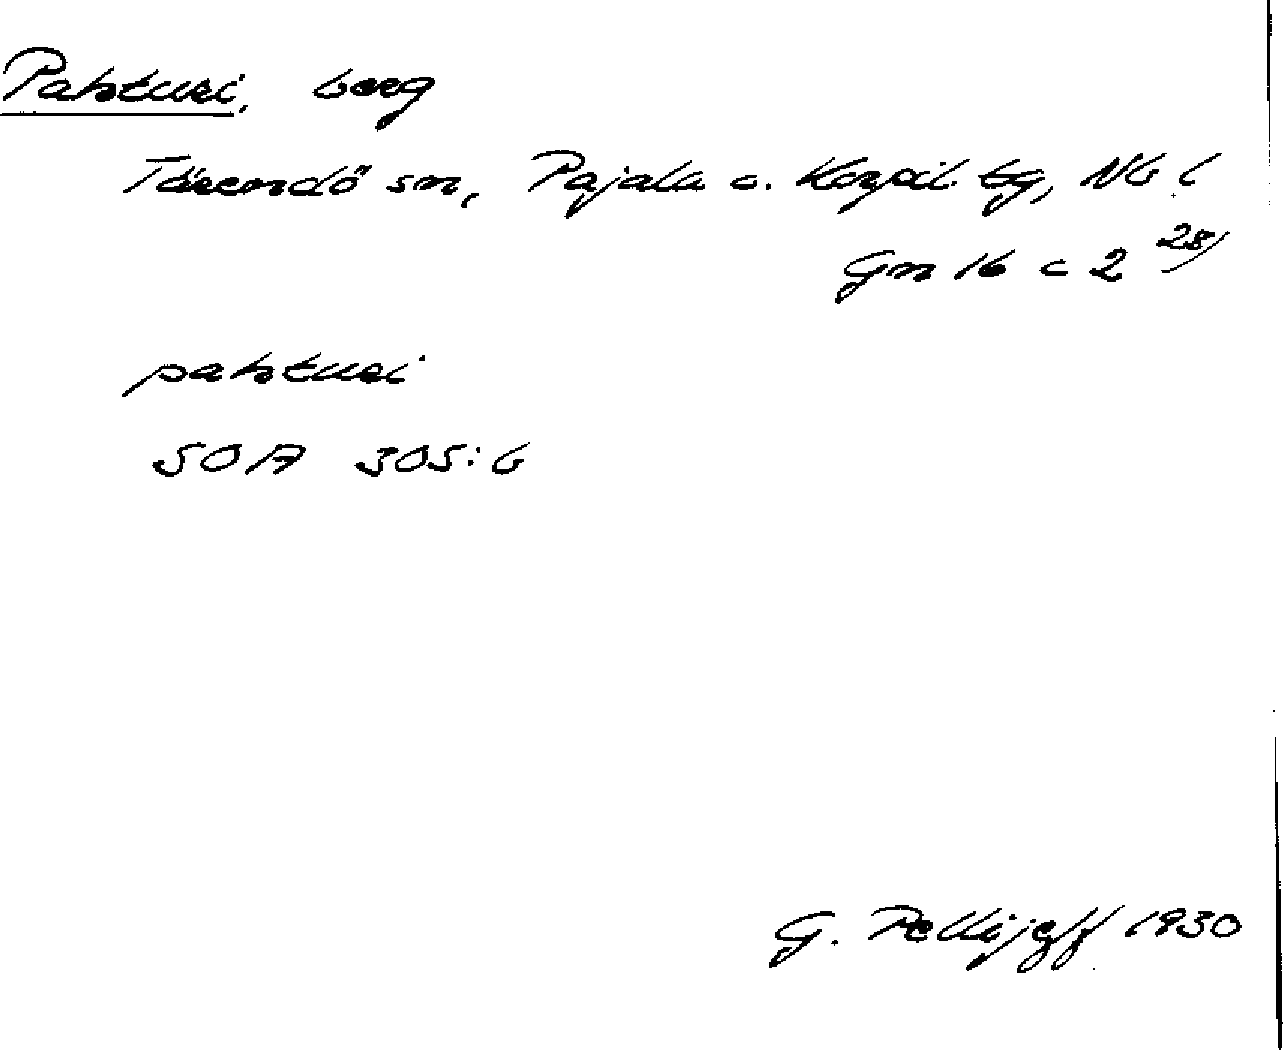 Pahturi, berg
Tärendö sn, Pajala o. Korpil. tg, Nb l
Gn 16 c 2 28/
pahturi
SOA 305:6
G. Pellijeff 1930